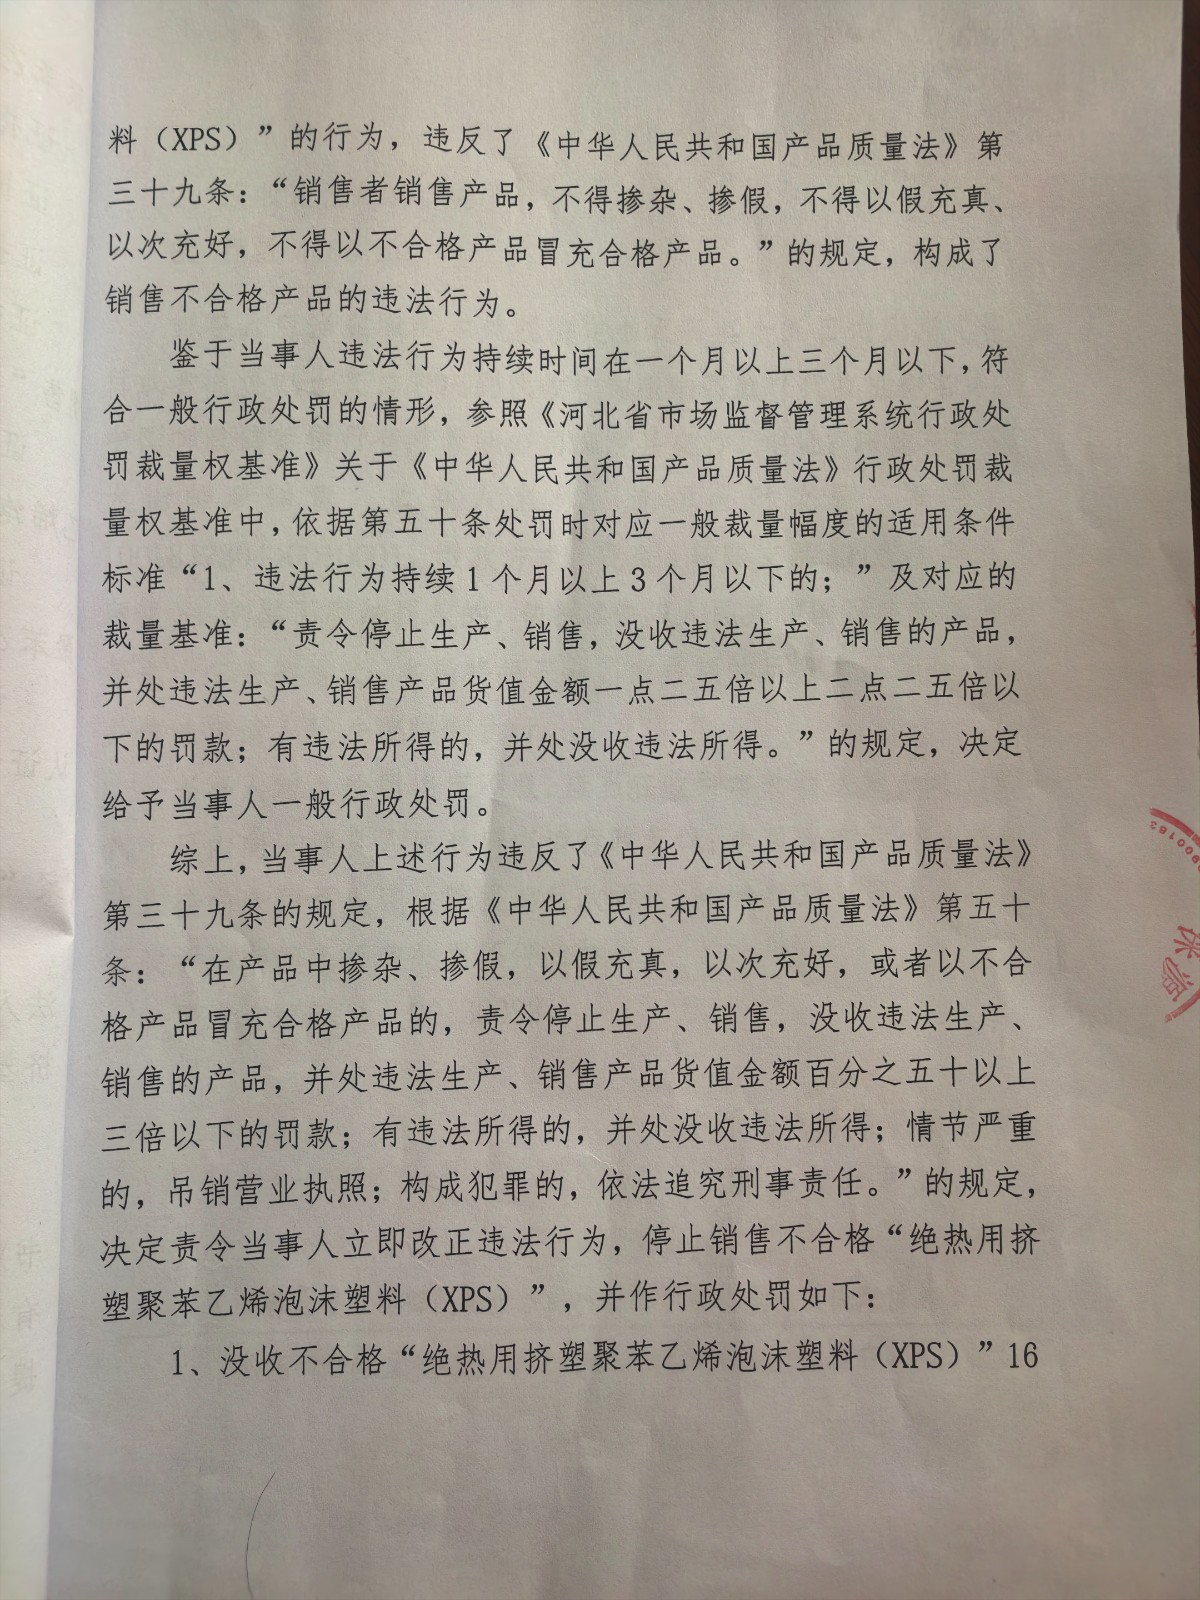 料（XPS）”的行为，违反了《中华人民共和国产品质量法》第
三十九条：“销售者销售产品，不得掺杂、掺假，不得以假充真、
以次充好，不得以不合格产品冒充合格产品。”的规定，构成了
销售不合格产品的违法行为。
鉴于当事人违法行为持续时间在一个月以上三个月以下，符
合一般行政处罚的情形，参照《河北省市场监督管理系统行政处
罚裁量权基准》关于《中华人民共和国产品质量法》行政处罚裁
量权基准中，依据第五十条处罚时对应一般裁量幅度的适用条件
标准“1、违法行为持续1个月以上3个月以下的；”及对应的
裁量基准：“责令停止生产、销售，没收违法生产、销售的产品，
并处违法生产、销售产品货值金额一点二五倍以上二点二五倍以
下的罚款；有违法所得的，并处没收违法所得。”的规定，决定
给予当事人一般行政处罚。
综上，当事人上述行为违反了《中华人民共和国产品质量法》
第三十九条的规定，根据《中华人民共和国产品质量法》第五十
条：“在产品中掺杂、掺假，以假充真，以次充好，或者以不合
格产品冒充合格产品的，责令停止生产、销售，没收违法生产、
销售的产品，并处违法生产、销售产品货值金额百分之五十以上
三倍以下的罚款；有违法所得的，并处没收违法所得；情节严重
的，吊销营业执照；构成犯罪的，依法追究刑事责任。”的规定，
决定责令当事人立即改正违法行为，停止销售不合格“绝热用挤
塑聚苯乙烯泡沫塑料（XPS）”，并作行政处罚如下：
1、没收不合格“绝热用挤塑聚苯乙烯泡沫塑料（XPS）”16